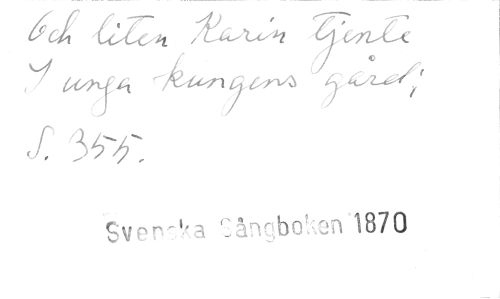 Och liten Karin tjente
I unga kungens gård;
S. 355.
Svenska Sångboken 1870